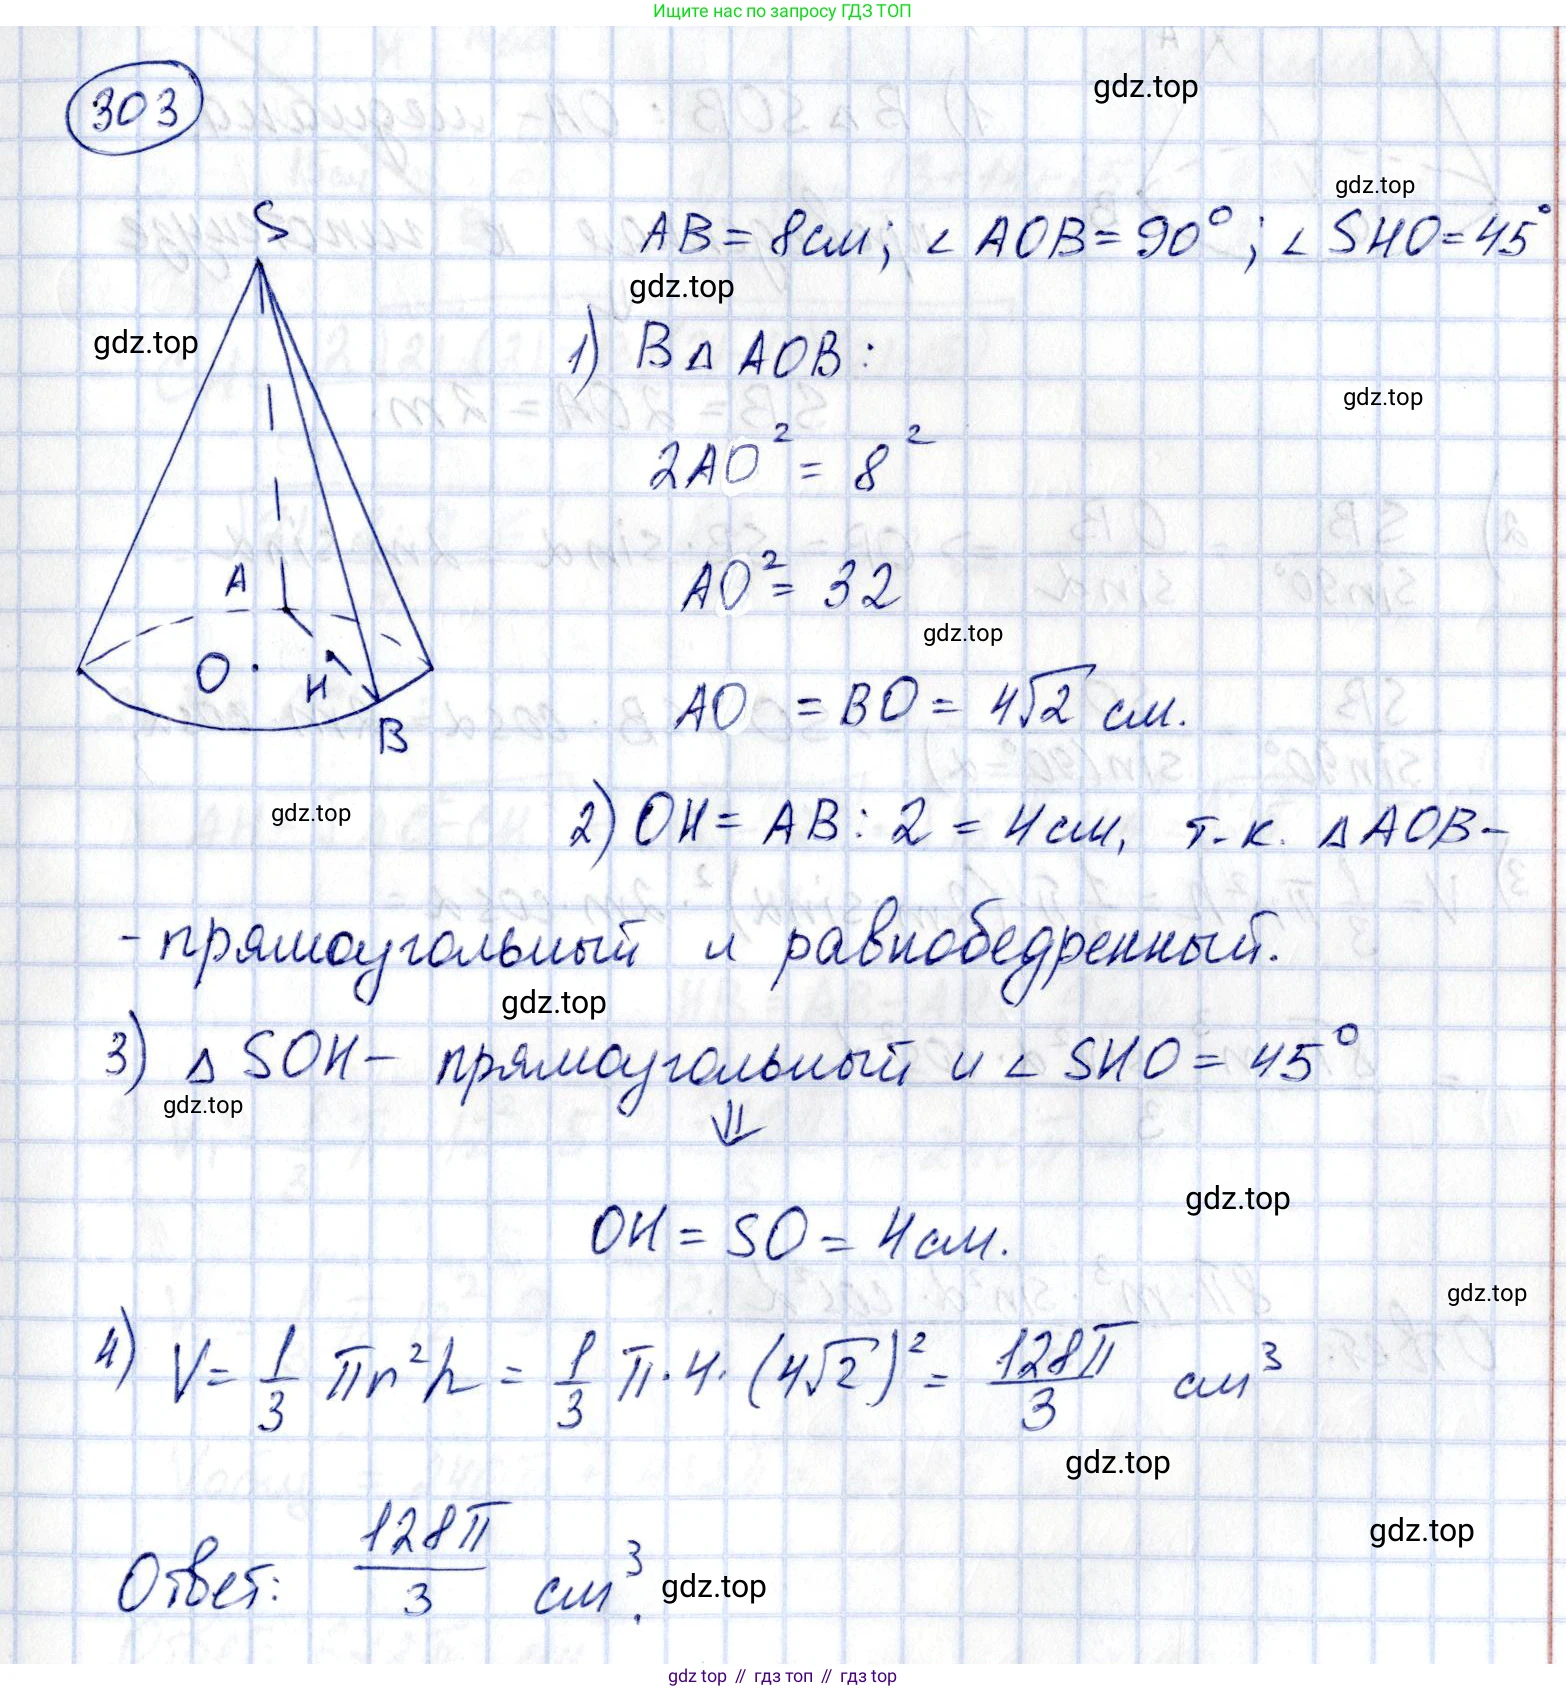 Ищите нас по запросу ГДЗ ТОП
303
gdz.top
gdz.top
S
AB = 8см; ∠ AOB = 90°; ∠ SHO = 45°
gdz.top
gdz.top
1) В △ AOB:
gdz.top
2AO² = 8²
A
AO² = 32
gdz.top
O
H
B
AO = BO = 4√2 см.
gdz.top
2) OH = AB : 2 = 4см, т.к. △ AOB –
- прямоугольный и равнобедренный.
gdz.top
3) △ SOH – прямоугольный и ∠ SHO = 45°
gdz.top
⇓
gdz.top
OH = SO = 4см.
gdz.top
4) V = 1/3 πr²h = 1/3 π · 4 · (4√2)² = 128π/3 см³
gdz.top
gdz.top
Ответ: 128π/3 см³.
gdz.top
gdz top // гдз топ // gdz top